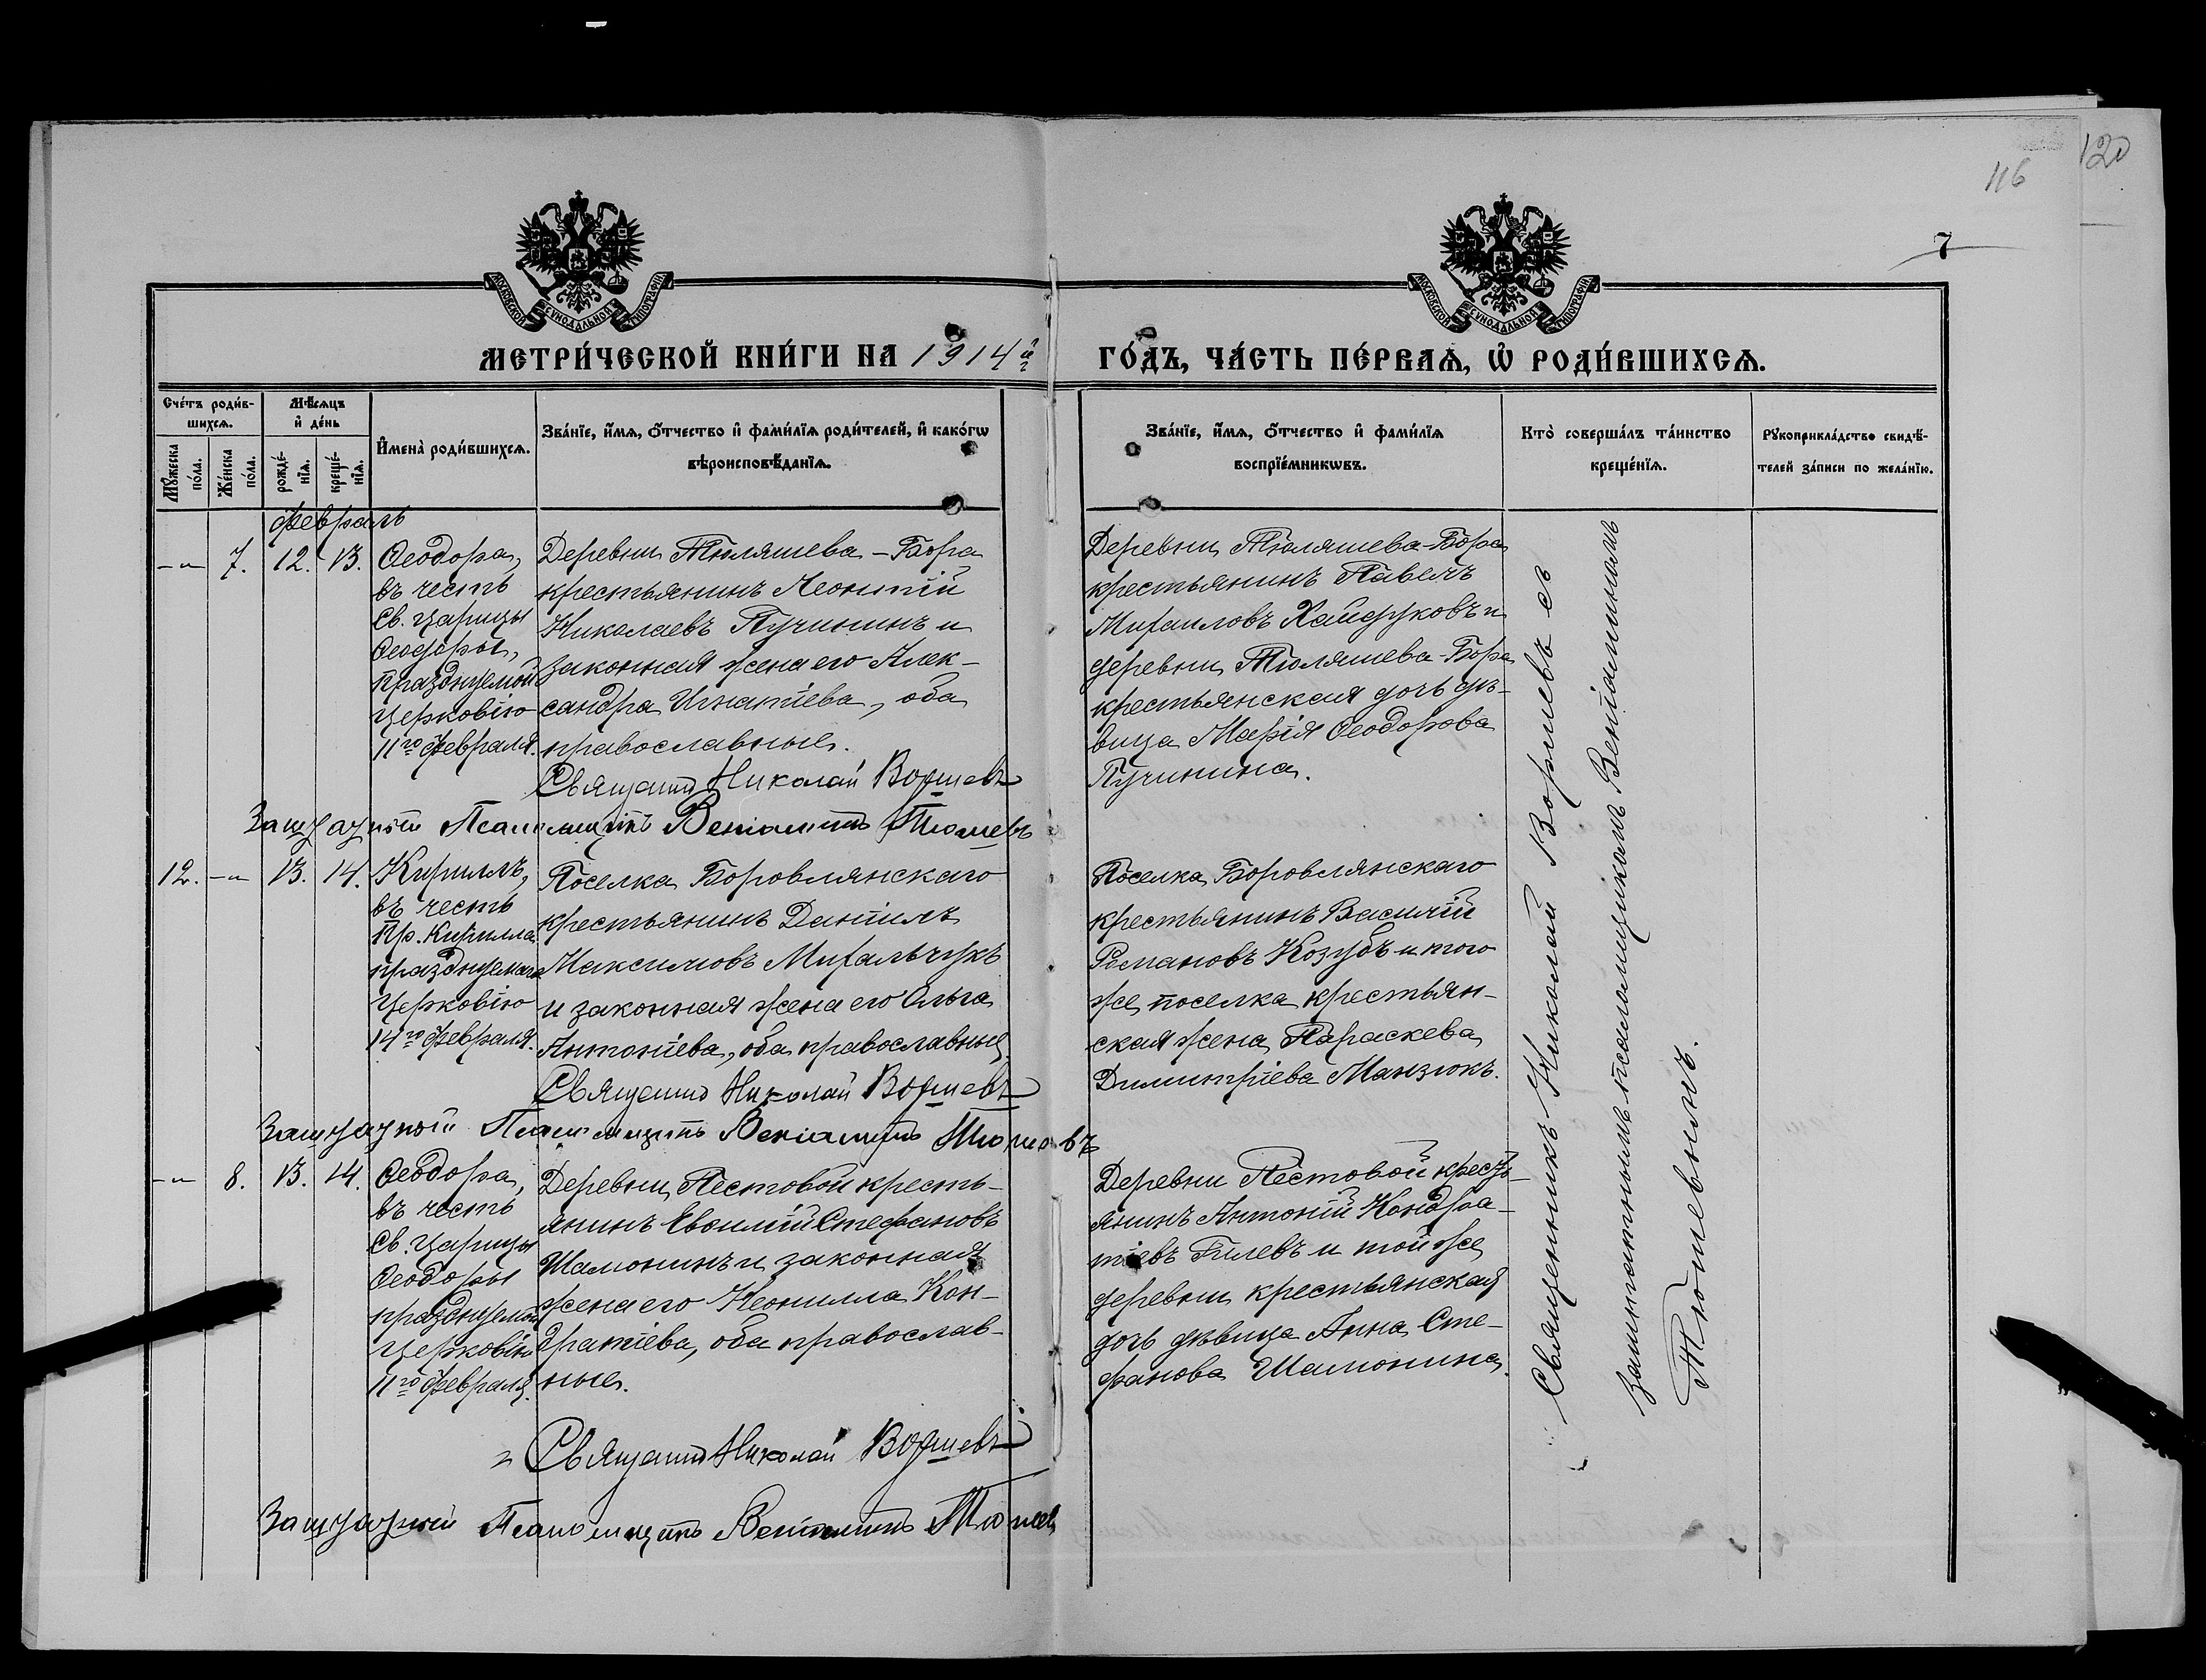 120
116
7
МОСКОВСКОЙ СѴНОДАЛЬНОЙ ТИПОГРАФІИ
МОСКОВСКОЙ СѴНОДАЛЬНОЙ ТИПОГРАФІИ
МЕТРИ́ЧЕСКОЙ КНИ́ГИ НА 1914й
ГО́ДЪ, ЧА́СТЬ ПЕ́РВАѦ, Ѡ҆ РОДИ́ВШИХСѦ.
Сче́тъ роди́в-
шихсѧ.
Мѣ́сѧцъ
и҆ де́нь
Мꙋ́жеска
по́ла.
Же́нска
по́ла.
рожде́-
нїѧ.
креще́-
нїѧ.
И҆мена̀ роди́вшихсѧ.
Зва́нїе, и҆́мѧ, ѻ҆́тчество и҆ фами́лїѧ роди́телей, и҆ како́гѡ
вѣроисповѣ́данїѧ.
Зва́нїе, и҆́мѧ, ѻ҆́тчество и҆ фами́лїѧ
воспрїе́мникѡвъ.
Кто̀ соверша́лъ та́инство
креще́нїѧ.
Рꙋкоприкла́дство свидѣ́-
телей за́писи по жела́нїю.
Февраль
-„- 7. 12. 13.
Ѳеодора,
въ честь
Св. царицы
Ѳеодоры,
празднуемой
церковію
11го февраля.
Деревни Тюляшева-Бора
крестьянинъ Леонтій
Николаевъ Пучининъ и
законная жена его Алек-
сандра Игнатіева, оба
православные.
Священникъ Николай Воршевъ
Заштатный Псаломщикъ Веніаминъ Тюшевъ
Деревни Тюляшева-Бора
крестьянинъ Павелъ
Михаиловъ Хайдуковъ и
деревни Тюляшева-Бора
крестьянская дочь дѣ-
вица Марія Ѳеодорова
Пучинина.
12. -„- 13. 14.
Кириллъ,
въ честь
Пр. Кирилла
празднуемаго
церковію
14го февраля.
Поселка Боровлянскаго
крестьянинъ Даніилъ
Максимовъ Михальчукъ
и законная жена его Ольга
Антоніева, оба православные.
Священникъ Николай Воршевъ
Заштатный Псаломщикъ Веніаминъ Тюшевъ
Поселка Боровлянскаго
крестьянинъ Василій
Романовъ Козубъ и того
же поселка крестьян-
ская жена Параскева
Димитріева Манзюкъ.
-„- 8. 13. 14.
Ѳеодора,
въ честь
Св. Царицы
Ѳеодоры
празднуемой
церковію
11го февраля.
Деревни Пестовой кресть-
янинъ Евѳимій Стефановъ
Шамонинъ и законная
жена его Неонилла Кон-
дратіева, оба православ-
ные.
Священникъ Николай Воршевъ
Заштатный Псаломщикъ Веніаминъ Тюшевъ
Деревни Пестовой кресть-
янинъ Антоній Кондра-
тіевъ Гилевъ и той же
деревни крестьянская
дочь дѣвица Анна Сте-
фанова Шамонина.
Священникъ Николай Воршевъ съ
заштатнымъ псаломщикомъ Веніаминомъ
Тюшевымъ.